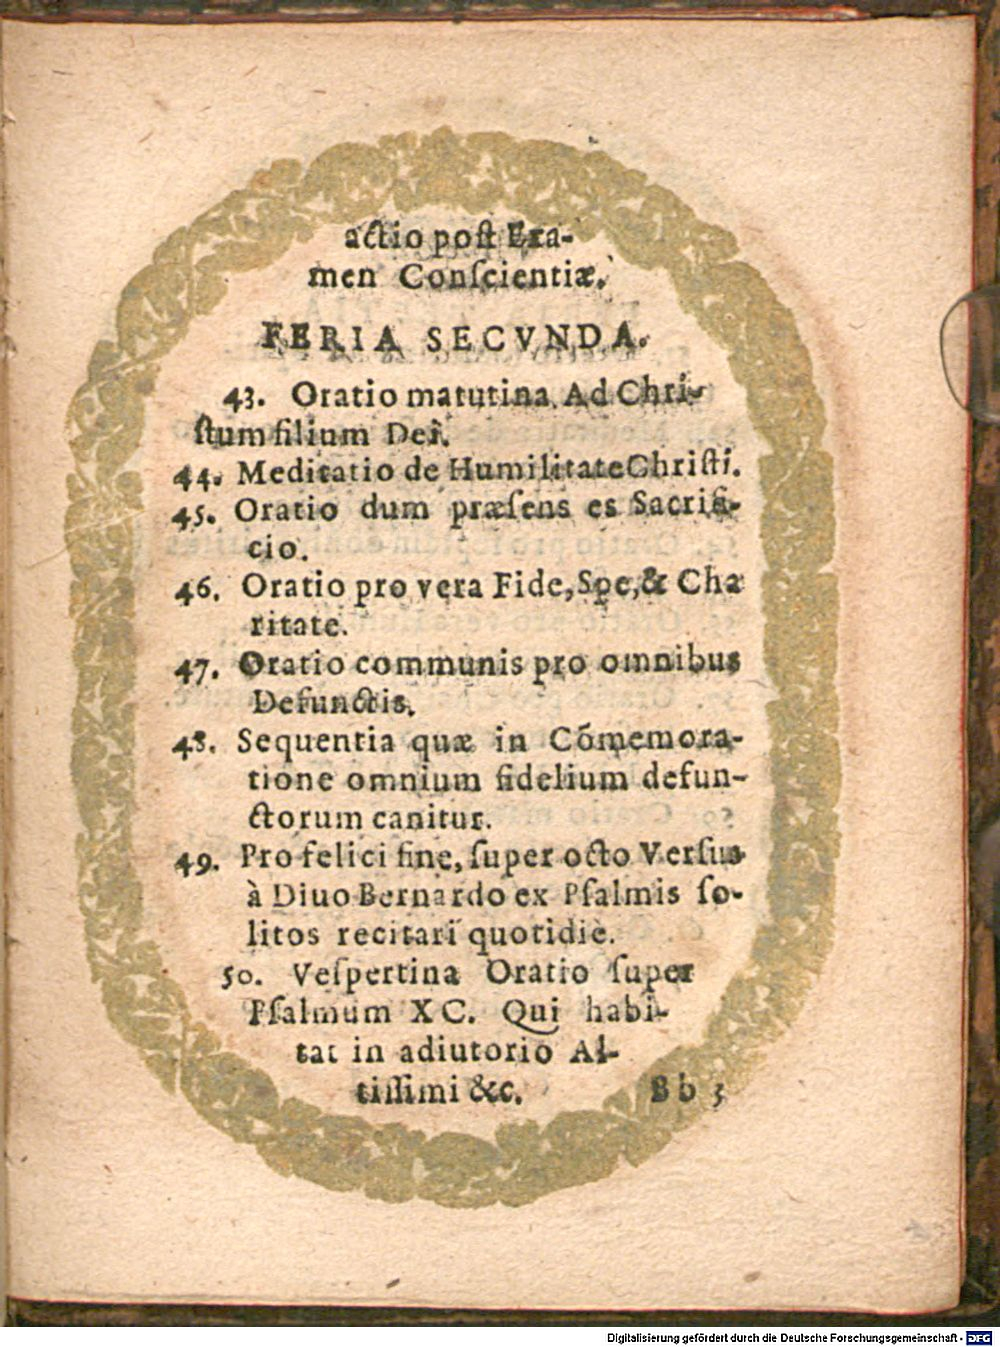 actio post Exa-
men Conſcientiæ.
FERIA SECVNDA.
43. Oratio matutina Ad Chri-
ſtum filium Dei.
44. Meditatio de Humilitate Chriſti.
45. Oratio dum præſens es Sacrifi-
cio.
46. Oratio pro vera Fide, Spe, & Cha
ritate.
47. Oratio communis pro omnibus
Defunctis.
48. Sequentia quæ in Cõmemora-
tione omnium fidelium defun-
ctorum canitur.
49. Pro felici fine, ſuper octo Verſus
à Diuo Bernardo ex Pſalmis ſo-
litos recitari quotidiè.
50. Veſpertina Oratio ſuper
Pſalmum XC. Qui habi-
tat in adiutorio Al-
tiſſimi &c.
Bb 3
Digitalisierung gefördert durch die Deutsche Forschungsgemeinschaft - DFG